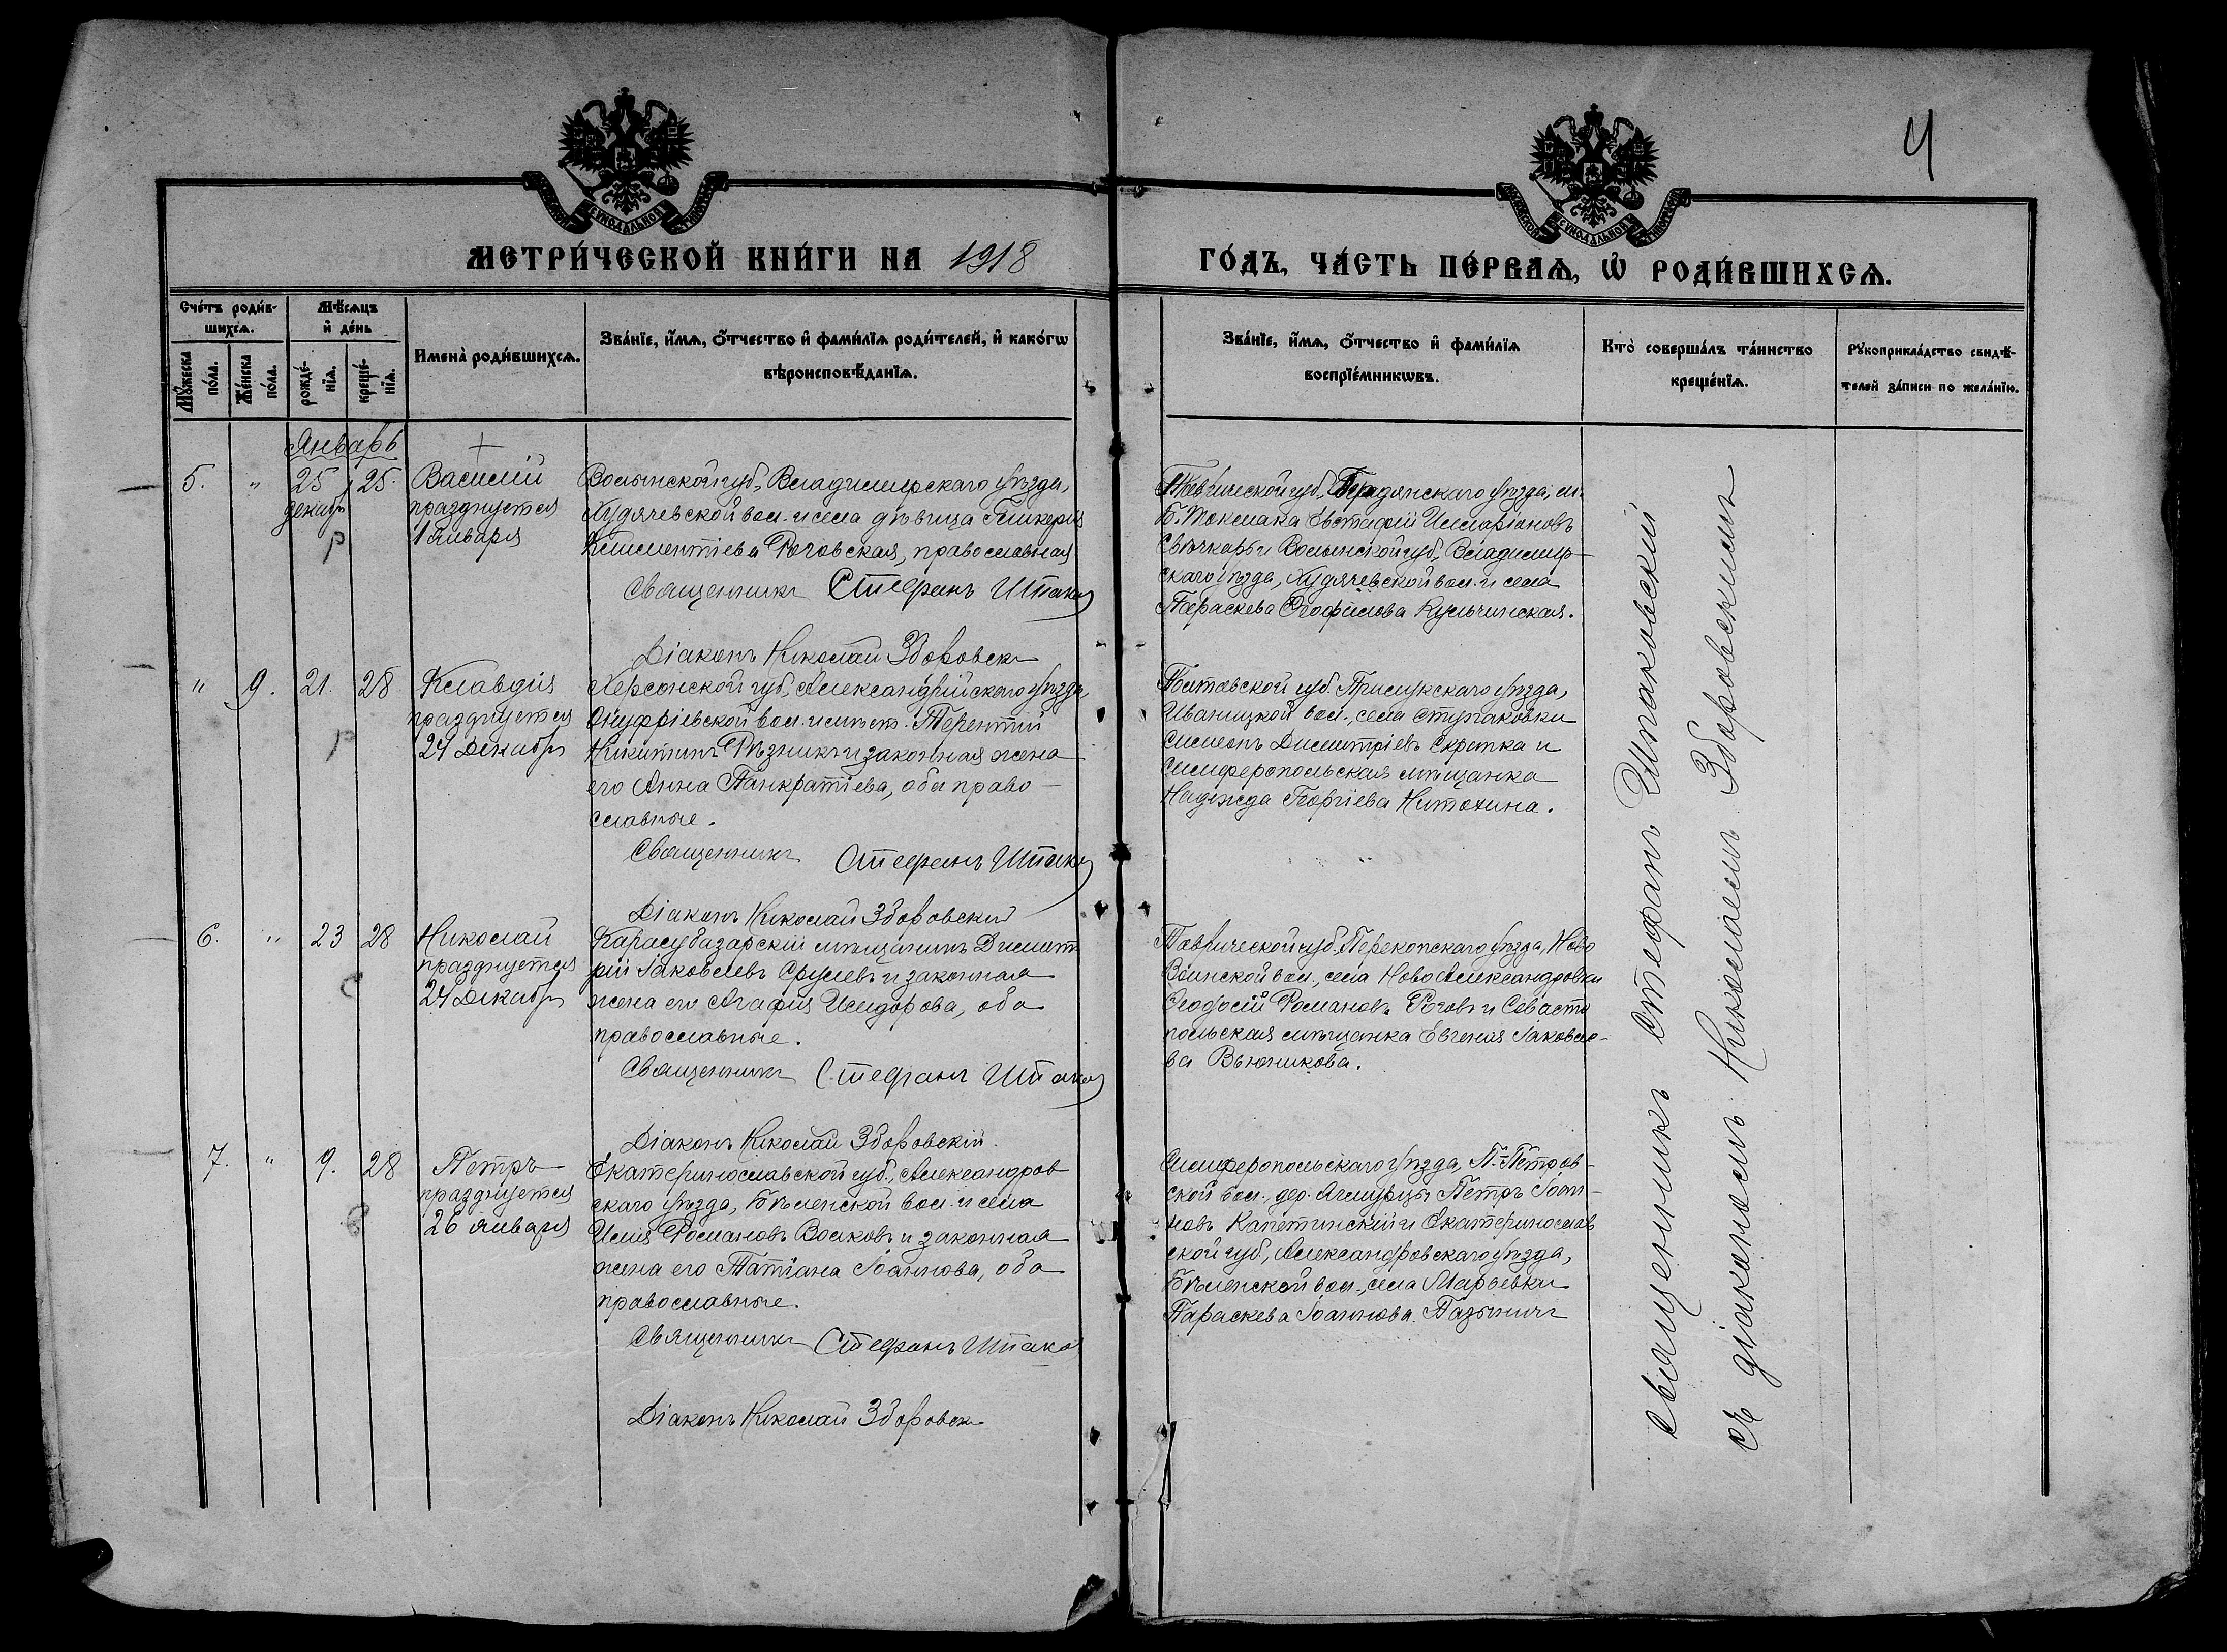 4
МЕТРИ́ЧЕСКОЙ КНИ́ГИ НА 1918
ГО́ДЪ, ЧА́СТЬ ПЕ́РВАѦ, Ѽ РОДИ́ВШИХСѦ.
Сче́тъ роди́в-
шихсѧ.
Мѣ́сѧцъ
и҆ де́нь
Мꙋ́жеска
по́ла.
Же́нска
по́ла.
рожде́-
нїѧ.
креще́-
нїѧ.
Имена̀ роди́вшихсѧ.
Зва́нїе, и҆́мѧ, ѻ҆́тчество и҆ фами́лїѧ роди́телей, и҆ како́гѡ
вѣроисповѣ́данїѧ.
Зва́нїе, и҆́мѧ, ѻ҆́тчество и҆ фами́лїѧ
воспрїе́мникѡвъ.
Кто̀ соверша́лъ та́инство
креще́нїѧ.
Рꙋкоприкла́дство свидѣ́-
телей за́писи по жела́нїю.
Январь
5. " 25 25.
декабр
Василій
празднуется
1 января
Волынской губ., Владимирскаго уѣзда,
Худячевской вол. и села дѣвица Гликерія
Климентіева Роговская, православная
Священникъ Стефанъ Шпаков
Діаконъ Николай Здоровск
Таврической губ., Бердянскаго уѣзда, м.
Б. Токмака Евстафій Илларіоновъ
Свѣчкарь и Волынской губ., Владимир-
скаго уѣзда, Худячевской вол. и села
Параскева Ѳеофилова Кульчинская.
" 9. 21. 28
Клавдія
празднуется
24 Декабр
Херсонской губ., Александрійскаго уѣзда,
Онуфріевской вол. и мѣст. Терентій
Никитинъ Рѣзникъ и законная жена
его Анна Панкратіева, оба право-
славные.
Священникъ Стефанъ Шпаков
Діаконъ Николай Здоровскій
Полтавской губ. Прилукскаго уѣзда,
Иваницкой вол., села Ступаковки
Симеонъ Димитріевъ Скрипка и
Симферопольская мѣщанка
Надежда Георгіева Ниточина.
6. " 23 28
Николай
празднуется
24 Декабр
Карасубазарскій мѣщанинъ Димит
рій Іаковлевъ Срулевъ и законная
жена его Агафія Исидорова, оба
православные.
Священникъ Стефанъ Шпаков
Діаконъ Николай Здоровскій.
Таврической губ., Перекопскаго уѣзда, Ново
Воинской вол., села НовоАлександровки
Ѳеодосій Романовъ Роговъ и Севасто
польская мѣщанка Евгенія Іаковле-
ва Вьюникова.
7. " 9. 28
Петръ
празднуется
26 января
Екатеринославской губ., Александров
скаго уѣзда, Бѣленской вол. и села
Илія Романовъ Волковъ и законная
жена его Татіана Іоаннова, оба
православные.
Священникъ Стефанъ Шпако
Діаконъ Николай Здоровск
Симферопольскаго уѣзда, П.-Петров-
ской вол., дер. Петръ Іоан-
новъ Капетинскій и Екатеринослав
ской губ., Александровскаго уѣзда,
Бѣленской вол., села Марьевки
Параскева Іоаннова
Священникъ Стефанъ Шпаковскій
съ діакономъ Николаемъ Здоровскимъ